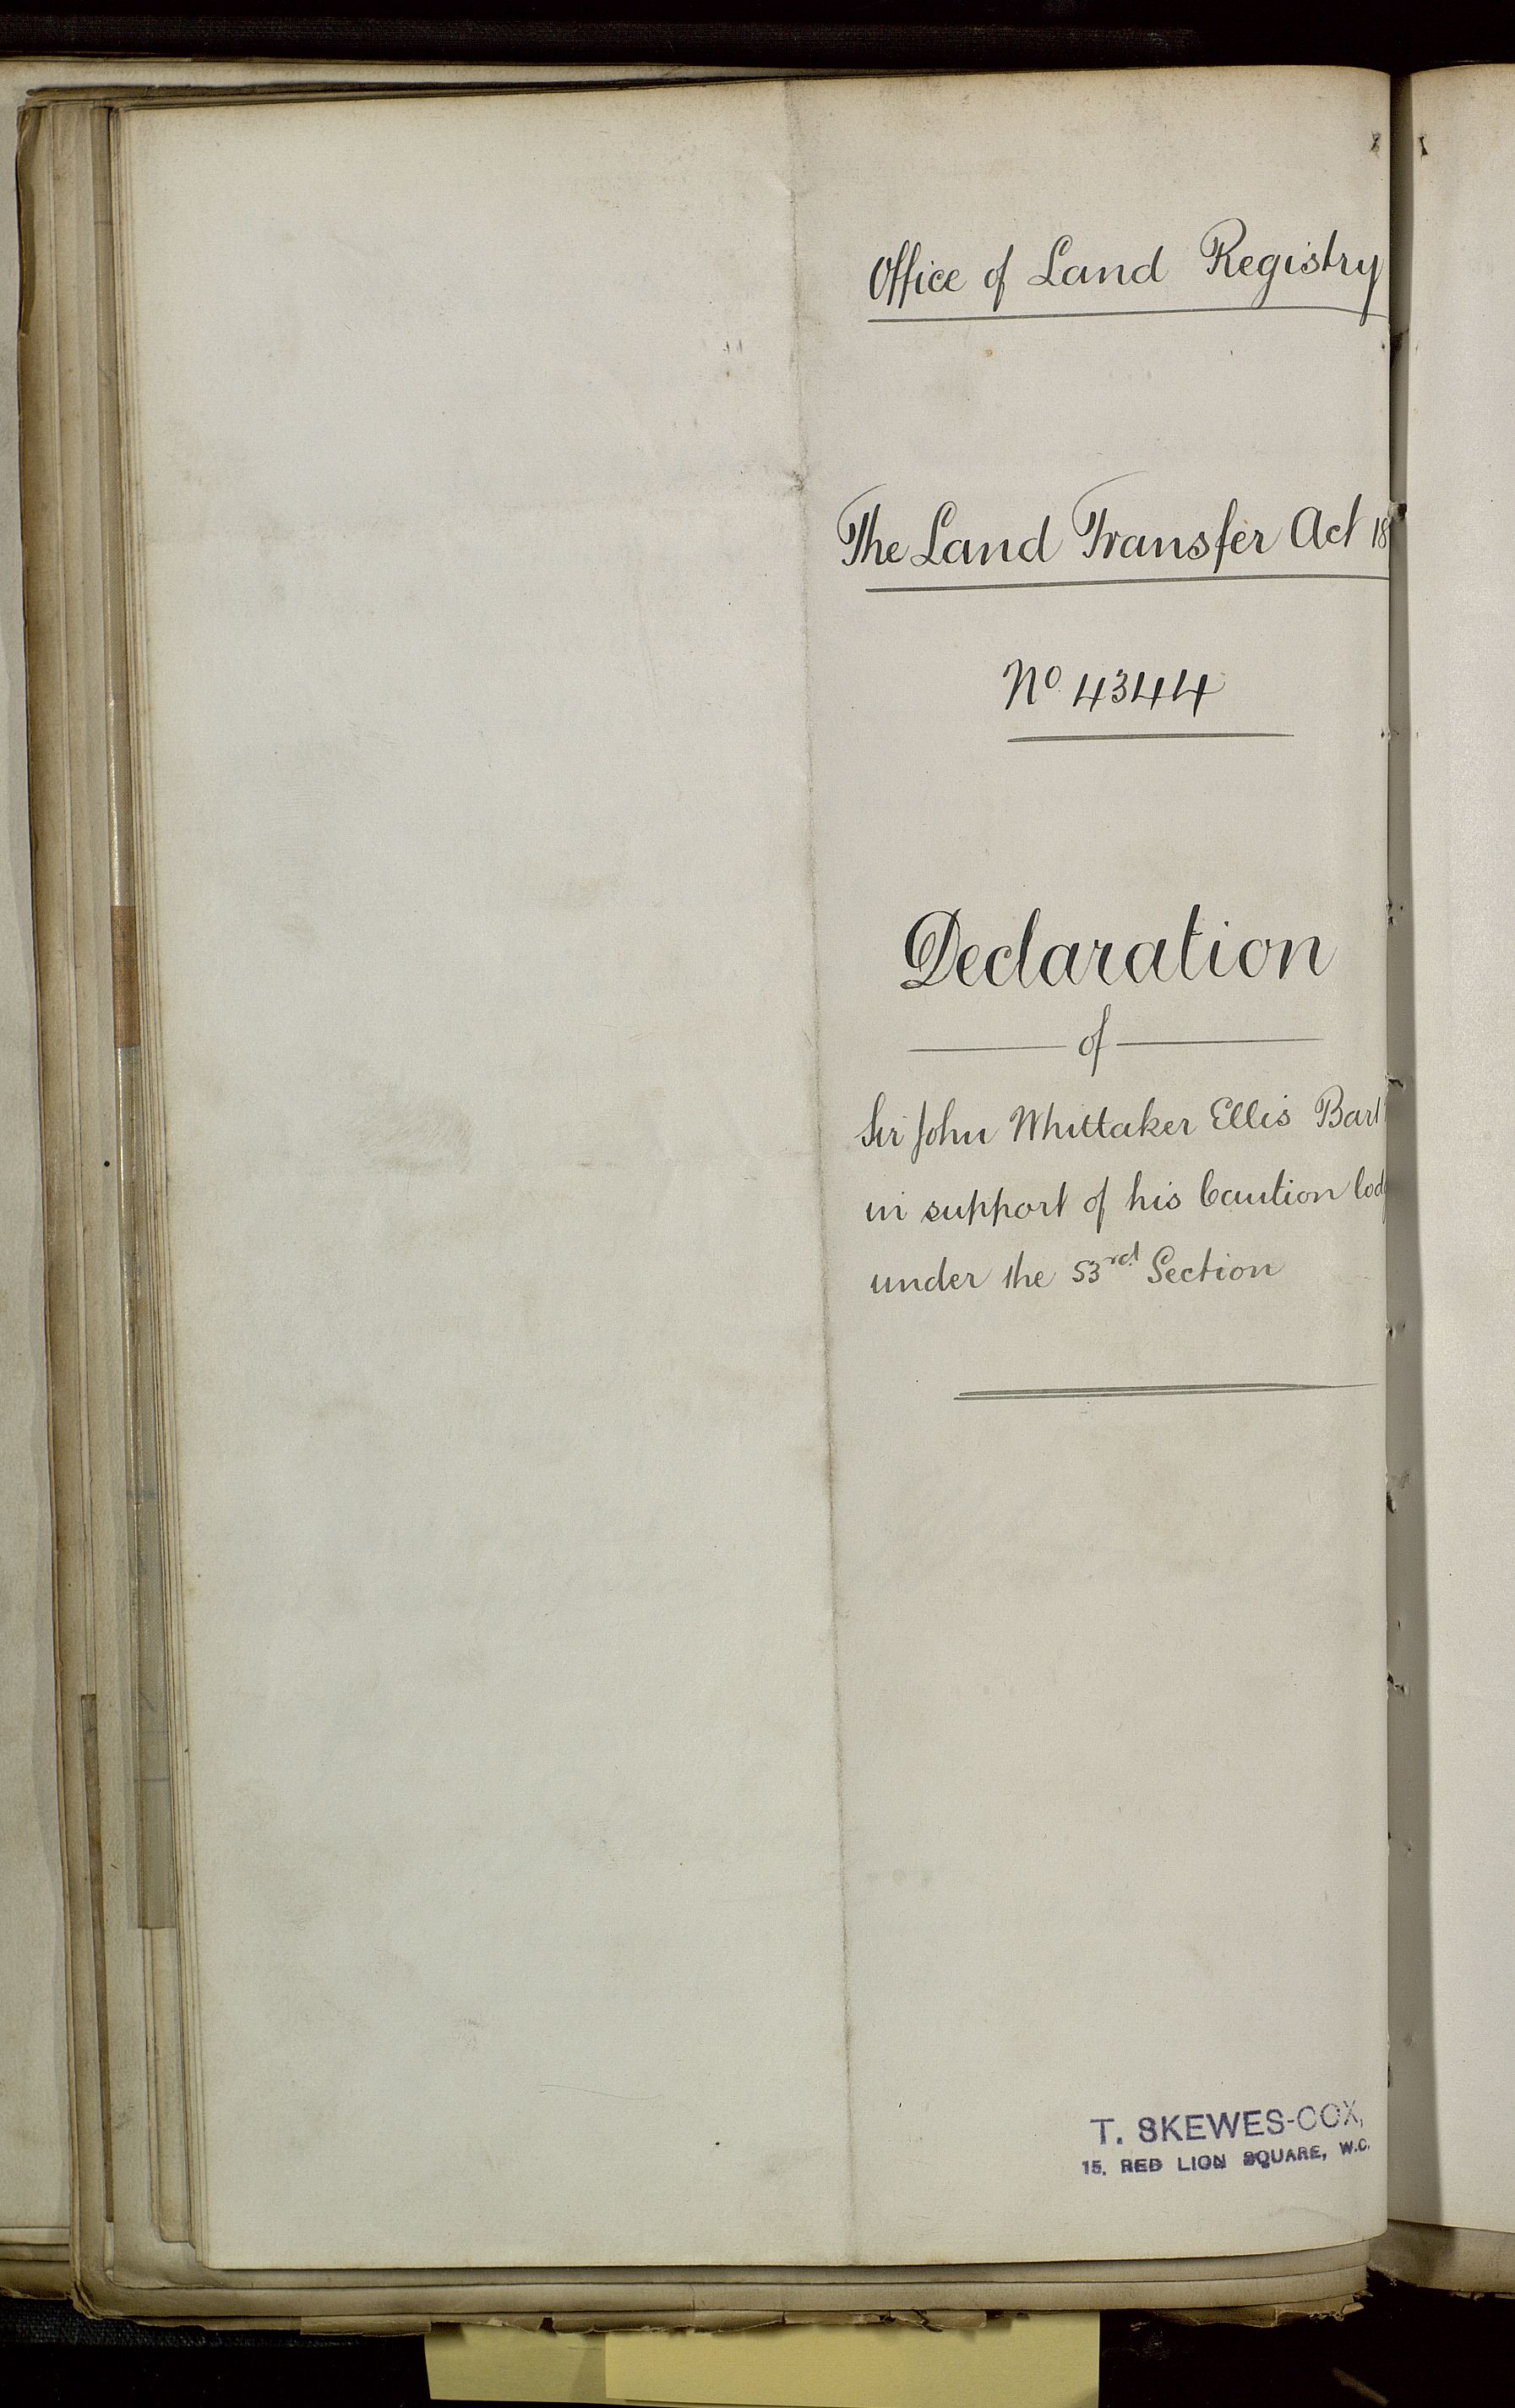 Office of Land Registry
The Land Transfer Act 18
No 4344
Declaration
of
Sir John Whittaker Ellis Bart
in support of his Caution lod
under the 53rd Section
T. SKEWES-COX,
15, RED LION SQUARE, W.C.